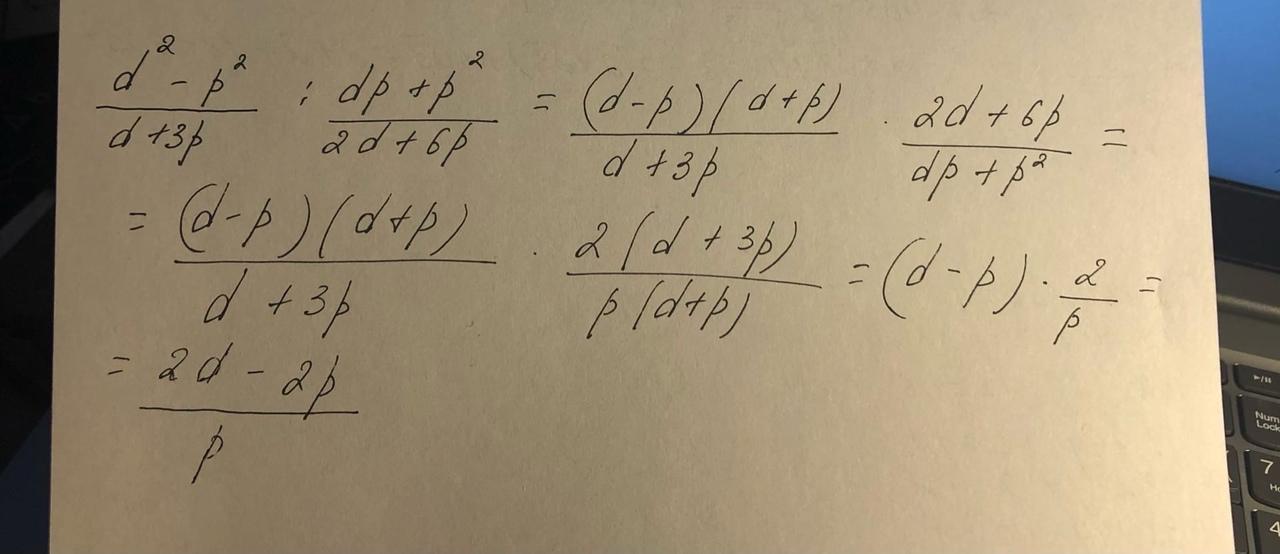 (d² - p²)/(d + 3p) : (dp + p²)/(2d + 6p) = ((d - p)(d + p))/(d + 3p) · (2d + 6p)/(dp + p²) =
= ((d - p)(d + p))/(d + 3p) · (2(d + 3p))/(p(d + p)) = (d - p) · 2/p =
= (2d - 2p)/p
Num
Lock
7
4